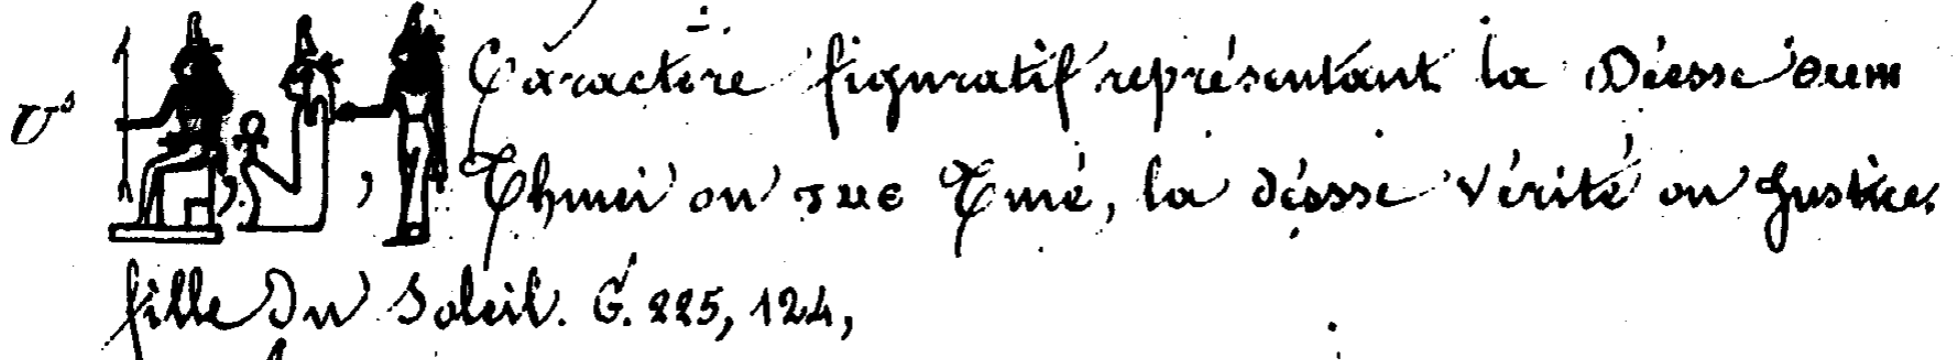 Caractère figuratif représentant la Déesse ⲑⲙⲉⲓ
Thmei ou ⲧⲙⲉ Tmé, la déesse Vérité ou Justice,
fille du Soleil. G. 225, 124,